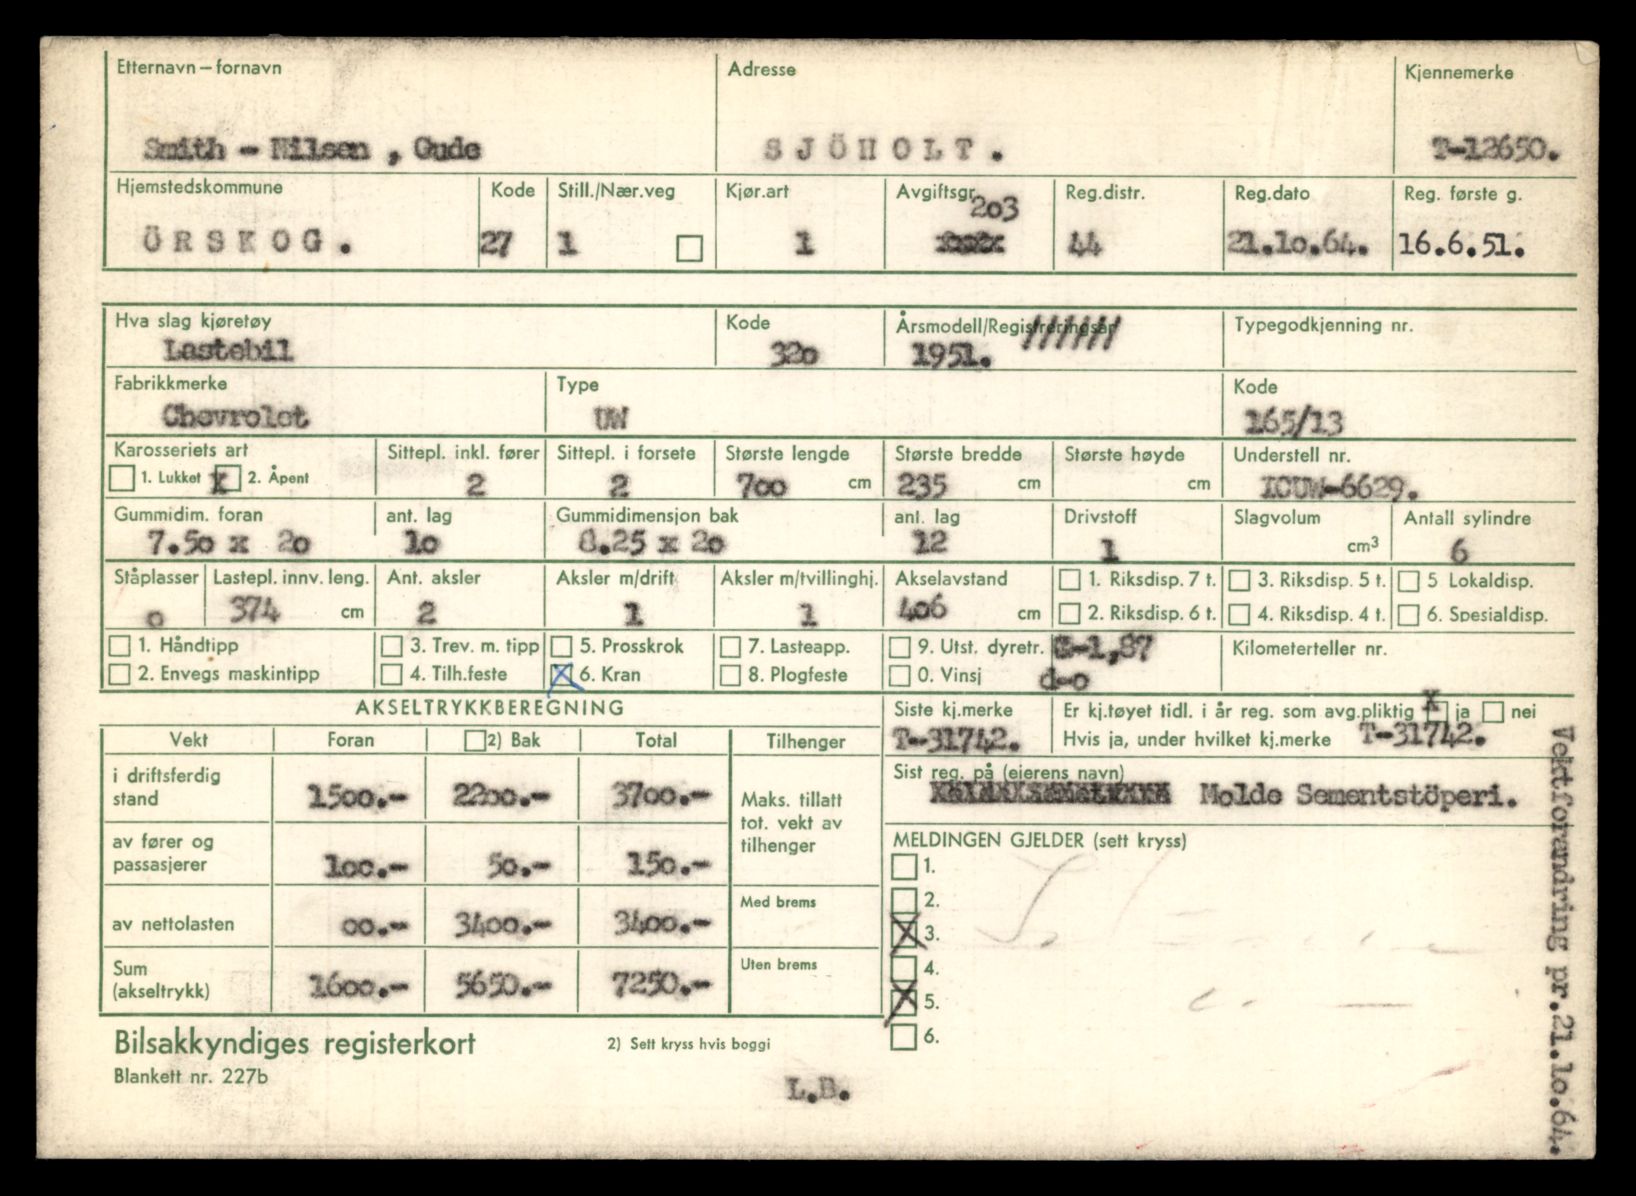 Etternavn – fornavn Adresse Kjennemerke
Smith - Nilsen , Gude SJÖHOLT. T-12650.
Hjemstedskommune Kode Still./Nær.veg Kjør.art Avgiftsgr. Reg.distr. Reg.dato Reg. første g.
203
ÖRSKOG. 27 1 1 44 21.10.64. 16.6.51.
Hva slag kjøretøy Kode Årsmodell/Registreringsår Typegodkjenning nr.
Lastebil 320 1951.
Fabrikkmerke Type Kode
Chevrolet UW 165/13
Karosseriets art Sittepl. inkl. fører Sittepl. i forsete Største lengde Største bredde Største høyde Understell nr.
1. Lukket X 2. Åpent 2 2 700 cm 235 cm cm ICUW-6629.
Gummidim. foran ant. lag Gummidimensjon bak ant. lag Drivstoff Slagvolum Antall sylindre
7.50 x 20 10 8.25 x 20 12 1 cm³ 6
Ståplasser Lastepl. innv. leng. Ant. aksler Aksler m/drift Aksler m/tvillinghj. Akselavstand 1. Riksdisp. 7 t. 3. Riksdisp. 5 t. 5 Lokaldisp.
0 374 cm 2 1 1 406 cm 2. Riksdisp. 6 t. 4. Riksdisp. 4 t. 6. Spesialdisp.
1. Håndtipp 3. Trev. m. tipp 5. Prosskrok 7. Lasteapp. 9. Utst. dyretr. -1,87 Kilometerteller nr.
2. Envegs maskintipp 4. Tilh.feste X 6. Kran 8. Plogfeste 0. Vinsj d-o
AKSELTRYKKBEREGNING Siste kj.merke Er kj.tøyet tidl. i år reg. som avg.pliktig x ja nei
Vekt Foran 2) Bak Total Tilhenger T-31742. Hvis ja, under hvilket kj.merke T-31742.
i driftsferdig stand 1500.- 2200.- 3700.- Sist reg. på (eierens navn)
Molde Sementstöperi.
Maks. tillatt tot. vekt av tilhenger
av fører og passasjerer 100.- 50.- 150.- MELDINGEN GJELDER (sett kryss)
1.
av nettolasten 00.- 3400.- 3400.- Med brems 2.
X 3.
Sum (akseltrykk) 1600.- 5650.- 7250.- Uten brems 4.
X 5.
6.
Bilsakkyndiges registerkort 2) Sett kryss hvis boggi
Blankett nr. 227b
L.B.
Vektforandring pr.21.10.64.